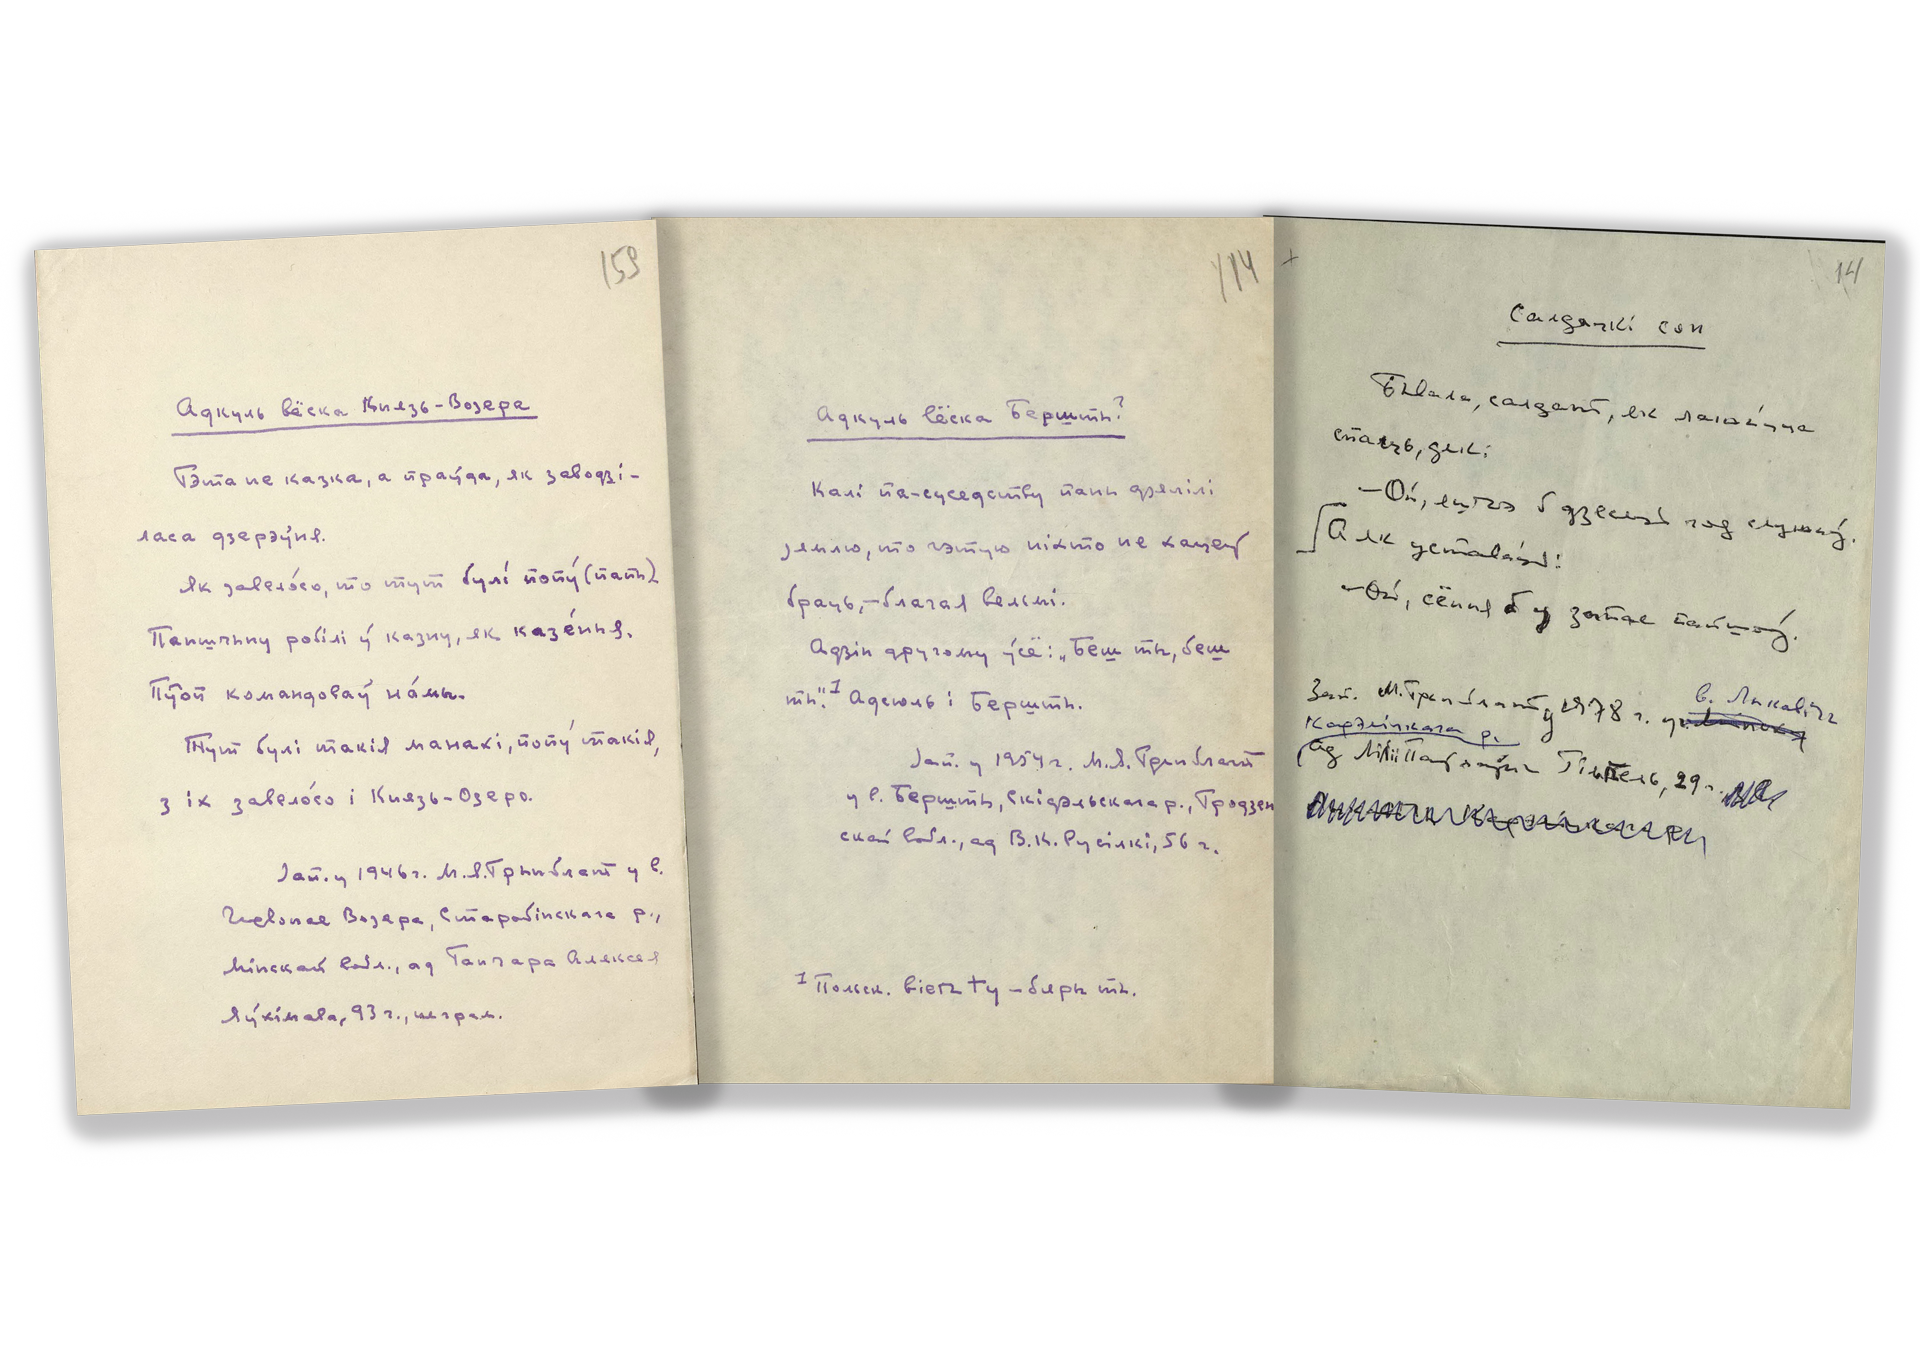 159
Адкуль вёска Князь-Возера
Гэта не казка, а праўда, як заводзі-
лася дзерэўня.
Як завело́со, то тут булі́ попы́ (папы)
Паншчыну робілі ў казну, як казе́ныя.
Пуоп командоваў на́мы.
Тут булі такія манахі, попы́ такія,
з іх завело́со і Князь-Озеро.
Зап. у 1946 г. М.Я. Грынблат у в.
Чырвонае Возера, Старобінскага р.,
Мінскай вобл., ад Ганчара Аляксея
Яўхімава, 93 г., няграм.
114
Адкуль вёска Бершты?
Калі па-суседству паны дзялілі
землю, то гэтую ніхто не хацеў
браць, – благая вельмі.
Адзін другому ўсё: „Беш ты, беш
ты".1 Адсюль і Бершты.
Зап. у 1954 г. М.Я. Грынблат
у в. Бершты, Скідэльскага р., Гродзен
скай вобл., ад В.К. Русілкі, 56 г.
1 Польск. bierz ty – бяры ты.
14
Салдацкі сон
Бывала, салдат, як лажыцца
спаць, дык:
– Ой, яшчэ б дзесяць год служыў.
А як уставаць:
– Ой, сёння б у запас пайшоў.
Зап. М. Грынблат у 1978 г. у в. Лыкавічы
Карэліцкага р.
ад Ліліі Паўлаўны Гінь, 29 г.